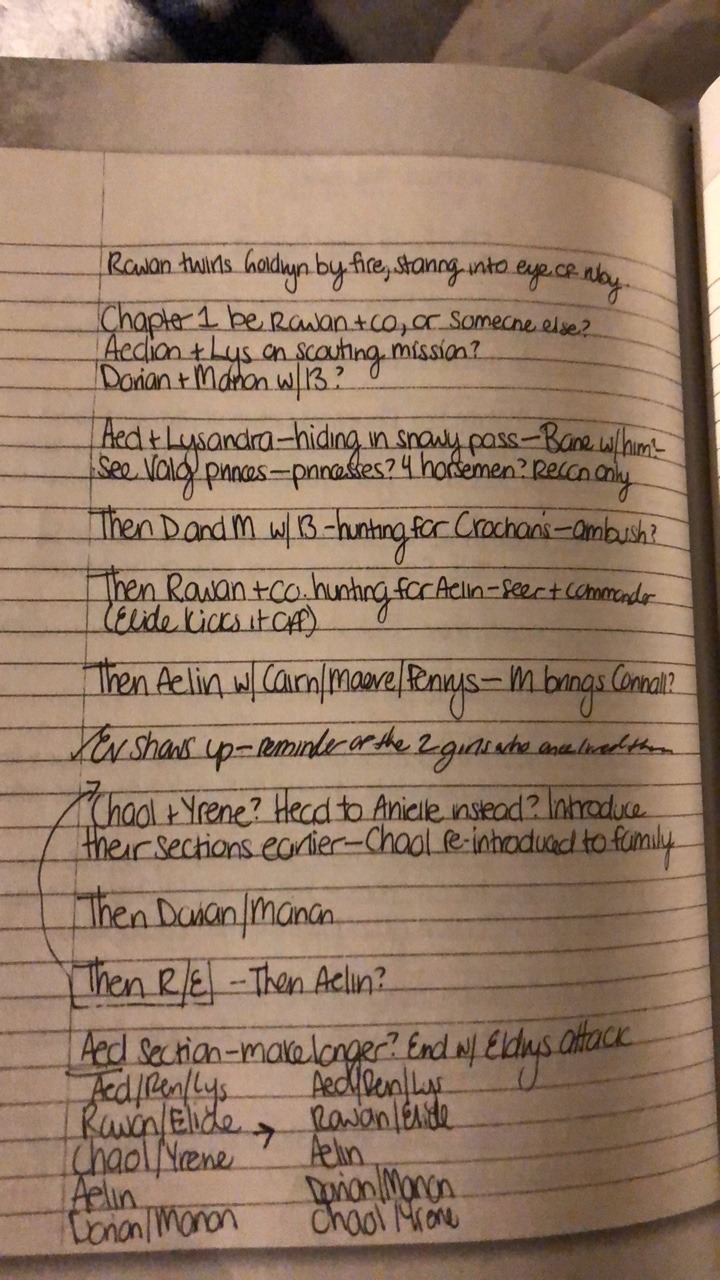 Rowan twirls Goldryn by fire, staring into eye of ruby.
Chapter 1 be Rowan + co, or someone else?
Aedion + Lys on scouting mission?
Dorian + Manon w/ 13?
Aed + Lysandra—hiding in snowy pass—Bane w/ him?—
See Valg princes—princesses? 4 horsemen? Recon only
Then D and M w/ 13 - hunting for Crochans—ambush?
Then Rowan + co. hunting for Aelin—seer + commander
(Elide kicks it off)
Then Aelin w/ Cairn/Maeve/Fenrys— M brings Connall?
Ev shows up—reminder of the 2 girls who once loved them
Chaol + Yrene? Head to Anielle instead? Introduce
their sections earlier—Chaol re-introduced to family
Then Dorian/Manon
Then R/E -- Then Aelin?
Aed section—make longer? End w/ Eldrys attack
Aed/Ren/Lys Aed/Ren/Lys
Rowan/Elide → Rowan/Elide
Chaol/Yrene Aelin
Aelin Dorian/Manon
Dorian/Manon Chaol/Yrene